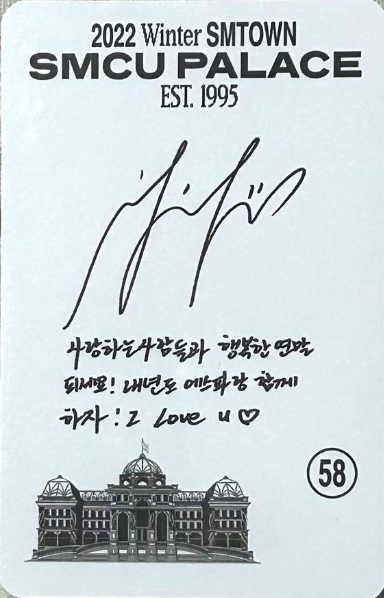 2022 Winter SMTOWN
SMCU PALACE
EST. 1995
사랑하는사람들과 행복한 연말
되세요! 내년도 에스파랑 함께
하자! I Love u ♡
58